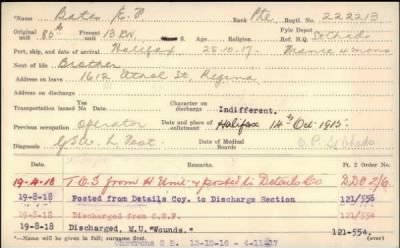 *Name Bates, E. P. Rank Pte. Regtl. No. 222213
Original unit 85th Present unit 13 RN M.S. Age Religion Ref. H.Q. Fyle Depot
Port, ship, and date of arrival Halifax 25.10.17. France 4 mons
Next of kin Brother
Address on leave 1612 Athol St, Regina
Address on discharge
Transportation issued To Date Character on discharge Indifferent.
Previous occupation Operator Date and place of enlistment Halifax 14th Oct. 1915.
Diagnosis G.S.W. L. Foot. Date of Medical Boards
Date Remarks Pt. 2 Order No.
19-4-18 T.O.S. from H Unit & posted to Details Co DDC 2/6
19-8-18 Posted from Details Coy. to Discharge Section 121/556
19-8-18 Discharged from C.E.F. 121/554
19-8-18 Discharged, M.U. "Wounds." 121-554.
*—Name will be given in full; surname first.